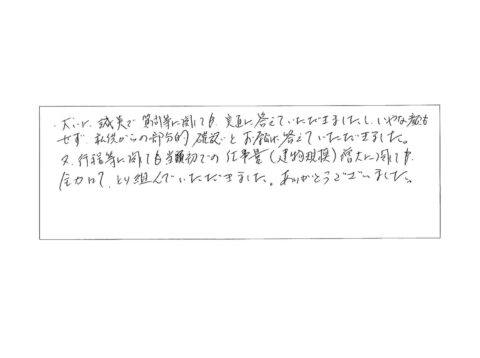 ・大いに、誠実で質問等に関しても、実直に答えていただきましたし、いやな顔も
せず、私供からの部分的確認も お答えいただきました。
又、行程等に関しても当初での仕事量(建物規模)増大に関しても
全力で、とり組んでいただきました。ありがとうございました。